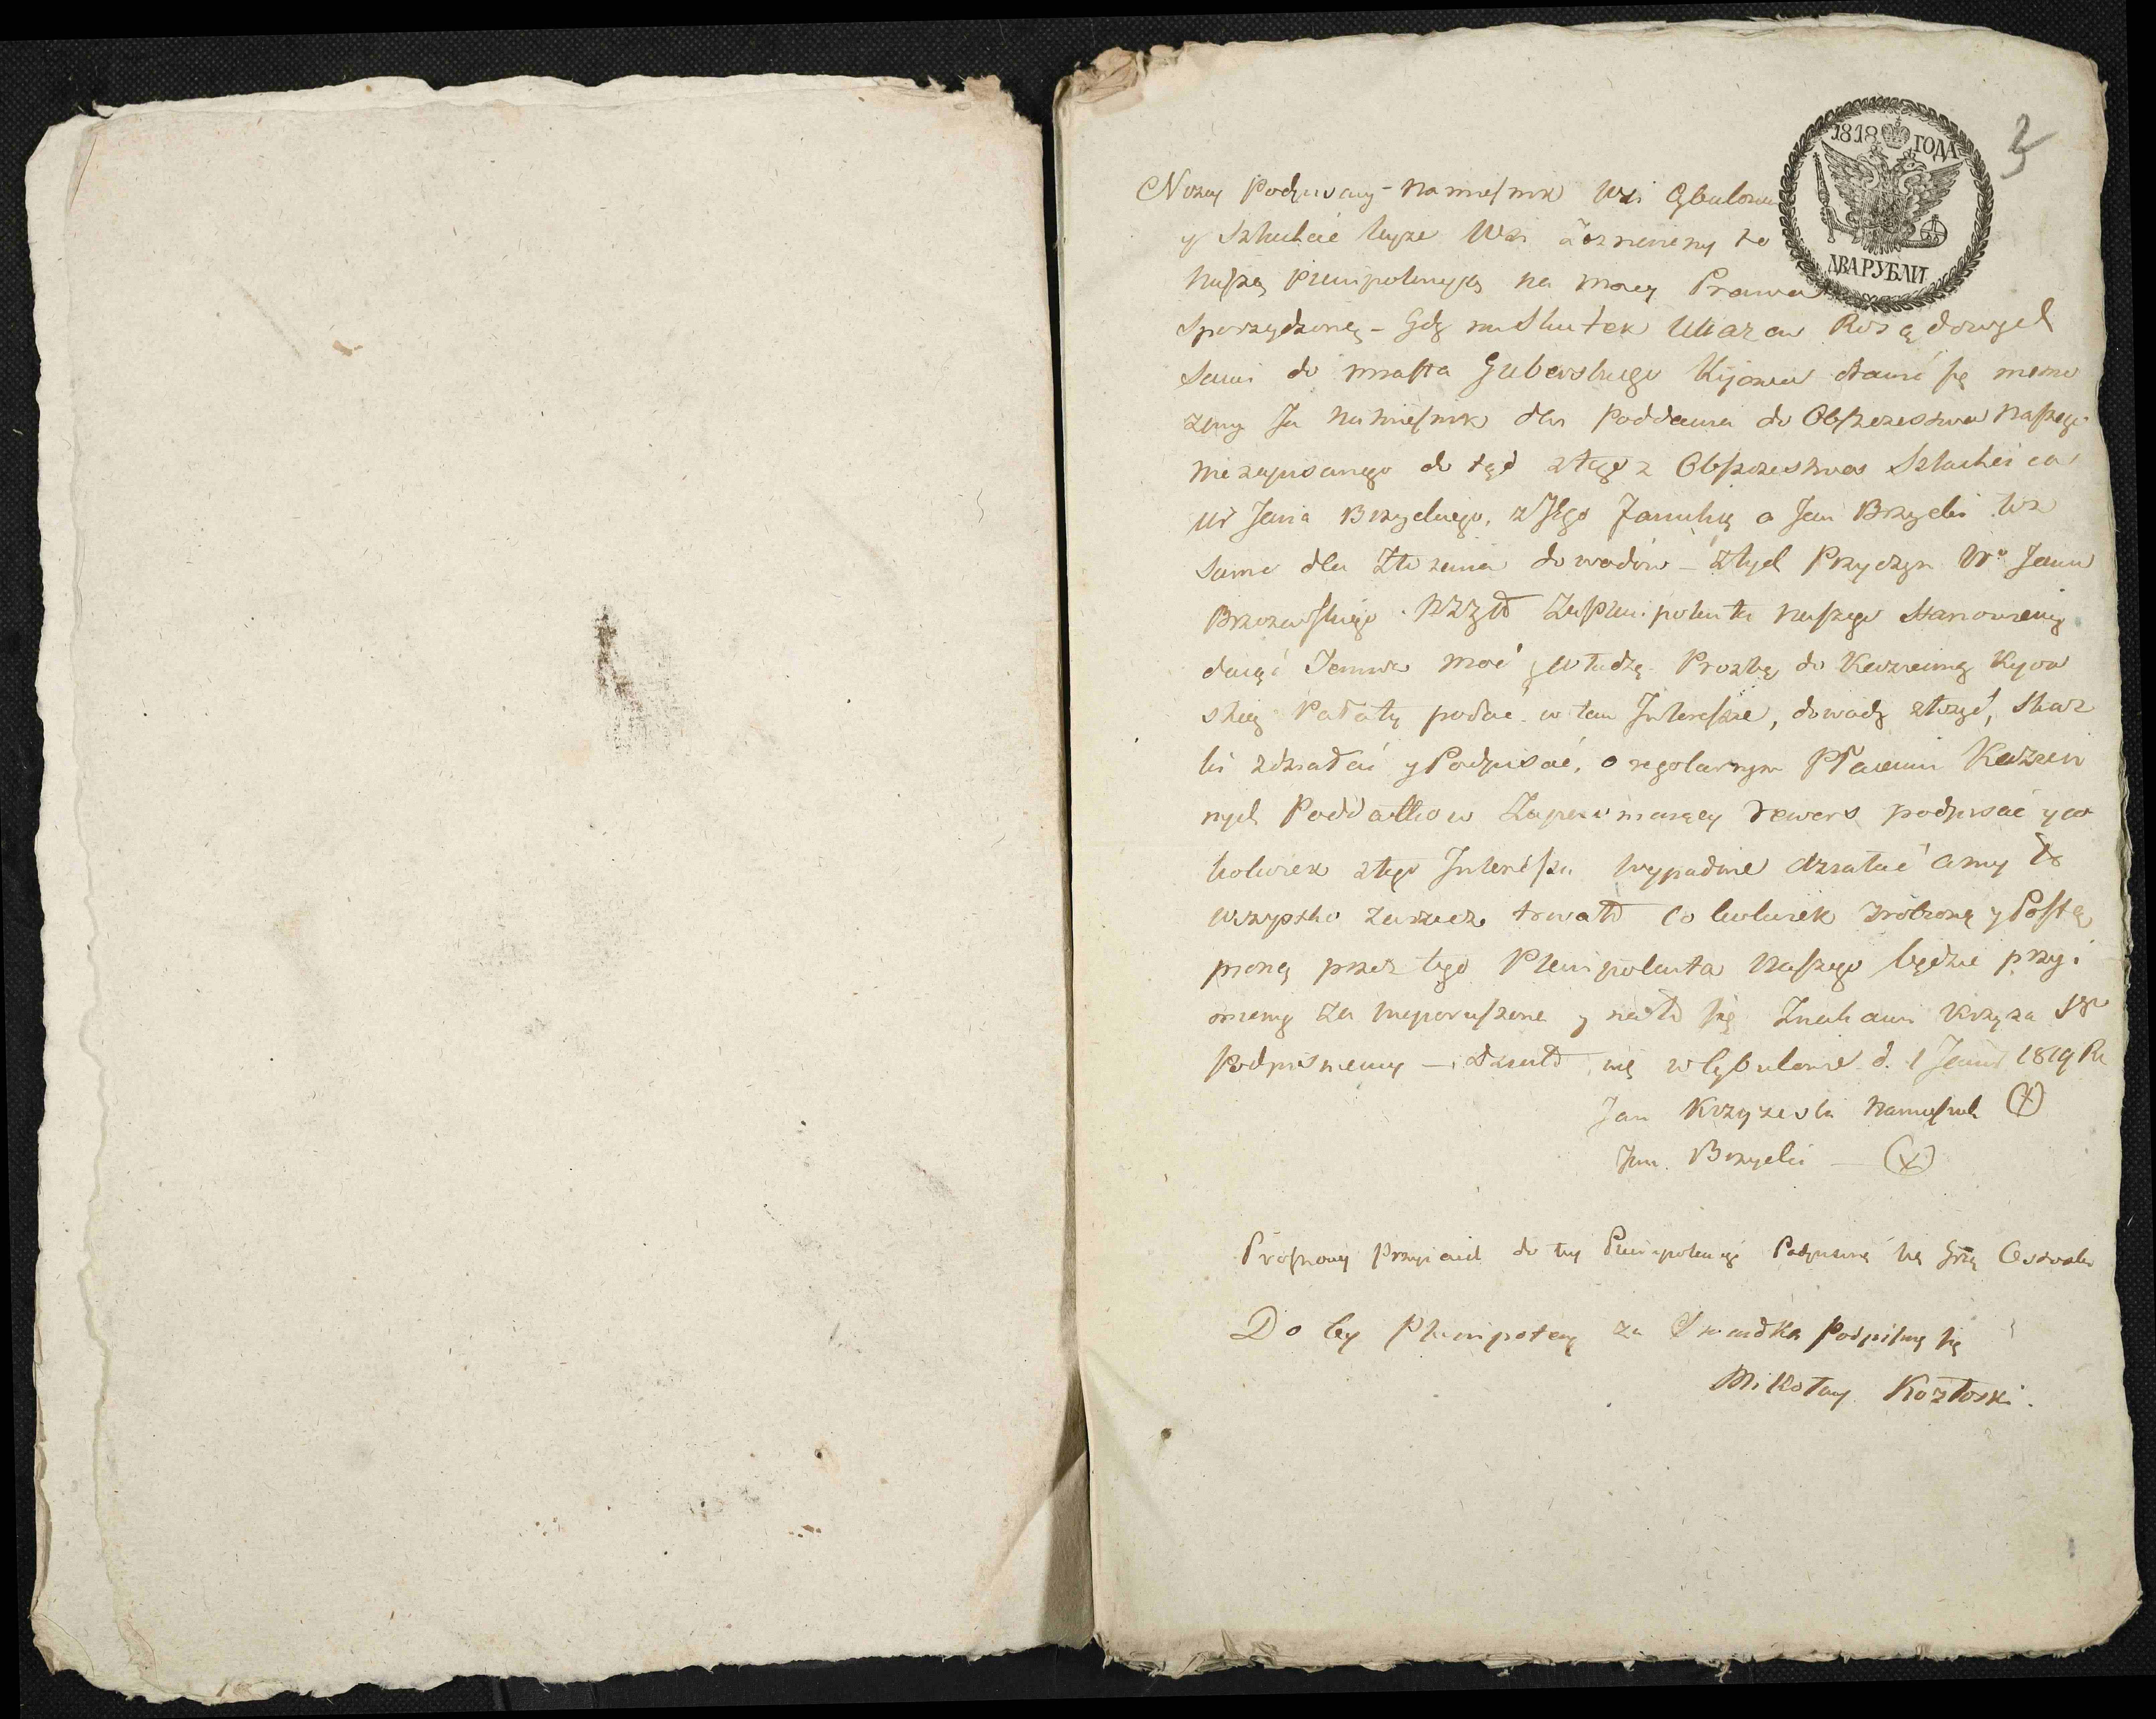 1818 ГОДА
ДВА РУБЛИ
Niżey Podpisany Namiesnik Wsi Cybulowa
y Szlachcic teyże Wsi zeznaiemy tę
naszą Plenipotencyą na mocy Prawa
Sporządzoną – Gdy na Skutek Ukazow
sami do miasta Guberskiego Kijowa stawić się niemo
żemy Ja Namiesnik dla Poddania do Obszczestwa Naszego
nie zapisanego do tąd z tego z Obszczestwa Szlachcica
Ur Jana Brzyckiego, z Jego Familią a Jan Brzycki
samo dla Złożenia dowodów – z tych Przyczyn Wo Jana
Brzozowskiego za Plenipotenta naszego Stanowiemy
daiąc Jemu Moc y władzę Prozbę do Kazionney Kijow
skiey Pałaty podać w tem Interessie, dowody złożyć, Skaz
ki zdziałać y Podpisać, o regolarnym Płaceniu Kazien
nych Poddatkow Zapewniaiący rewers podpisać y co
kolwiek z tego Interessu wypadnie działać a my to
wszystko zawsze trwało co kolwiek zrobioną y Postą
pioną przez tego Plenipotenta Naszego będzie przyi
miemy za nieporuszone y na to się Znakami Krzyża
Podpisuiemy — Działo się w Cybulowie d. 1 Januar 1819 Ru
Jan Krzyżewski Namiesnik (X)
Jan Brzycki — (X)
Proszony Przyiaciel do tey Plenipotencyi Podpisuię się
Do tey Plenipotency za Swiadka Podpisuię się
Mikołay Kozłoski.